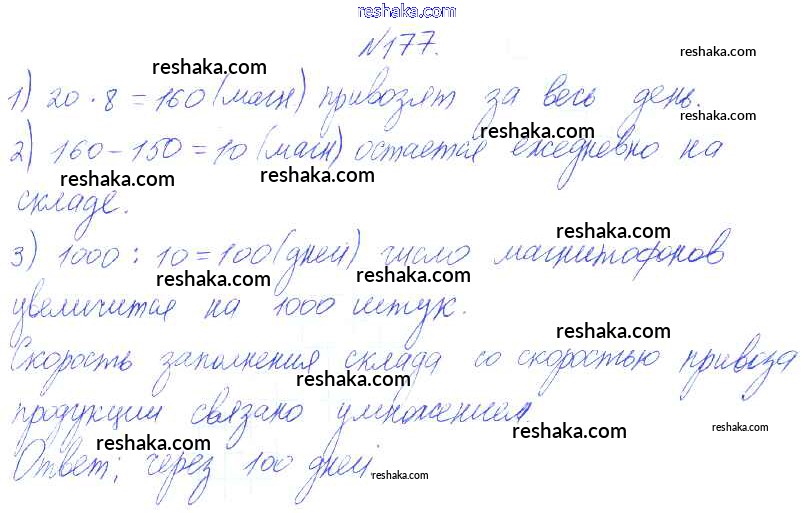 reshaka.com
№177.
reshaka.com reshaka.com
1) 20 · 8 = 160 (магн) привозят за весь день.
reshaka.com
2) 160 - 150 = 10 (магн) остается ежедневно на
reshaka.com reshaka.com
складе.
reshaka.com
3) 1000 : 10 = 100 (дней) число магнитофонов
reshaka.com reshaka.com
увеличится на 1000 штук.
reshaka.com
Скорость заполнения склада со скоростью привоза
reshaka.com
продукции связано умножением.
reshaka.com reshaka.com reshaka.com
Ответ; через 100 дней.
reshaka.com